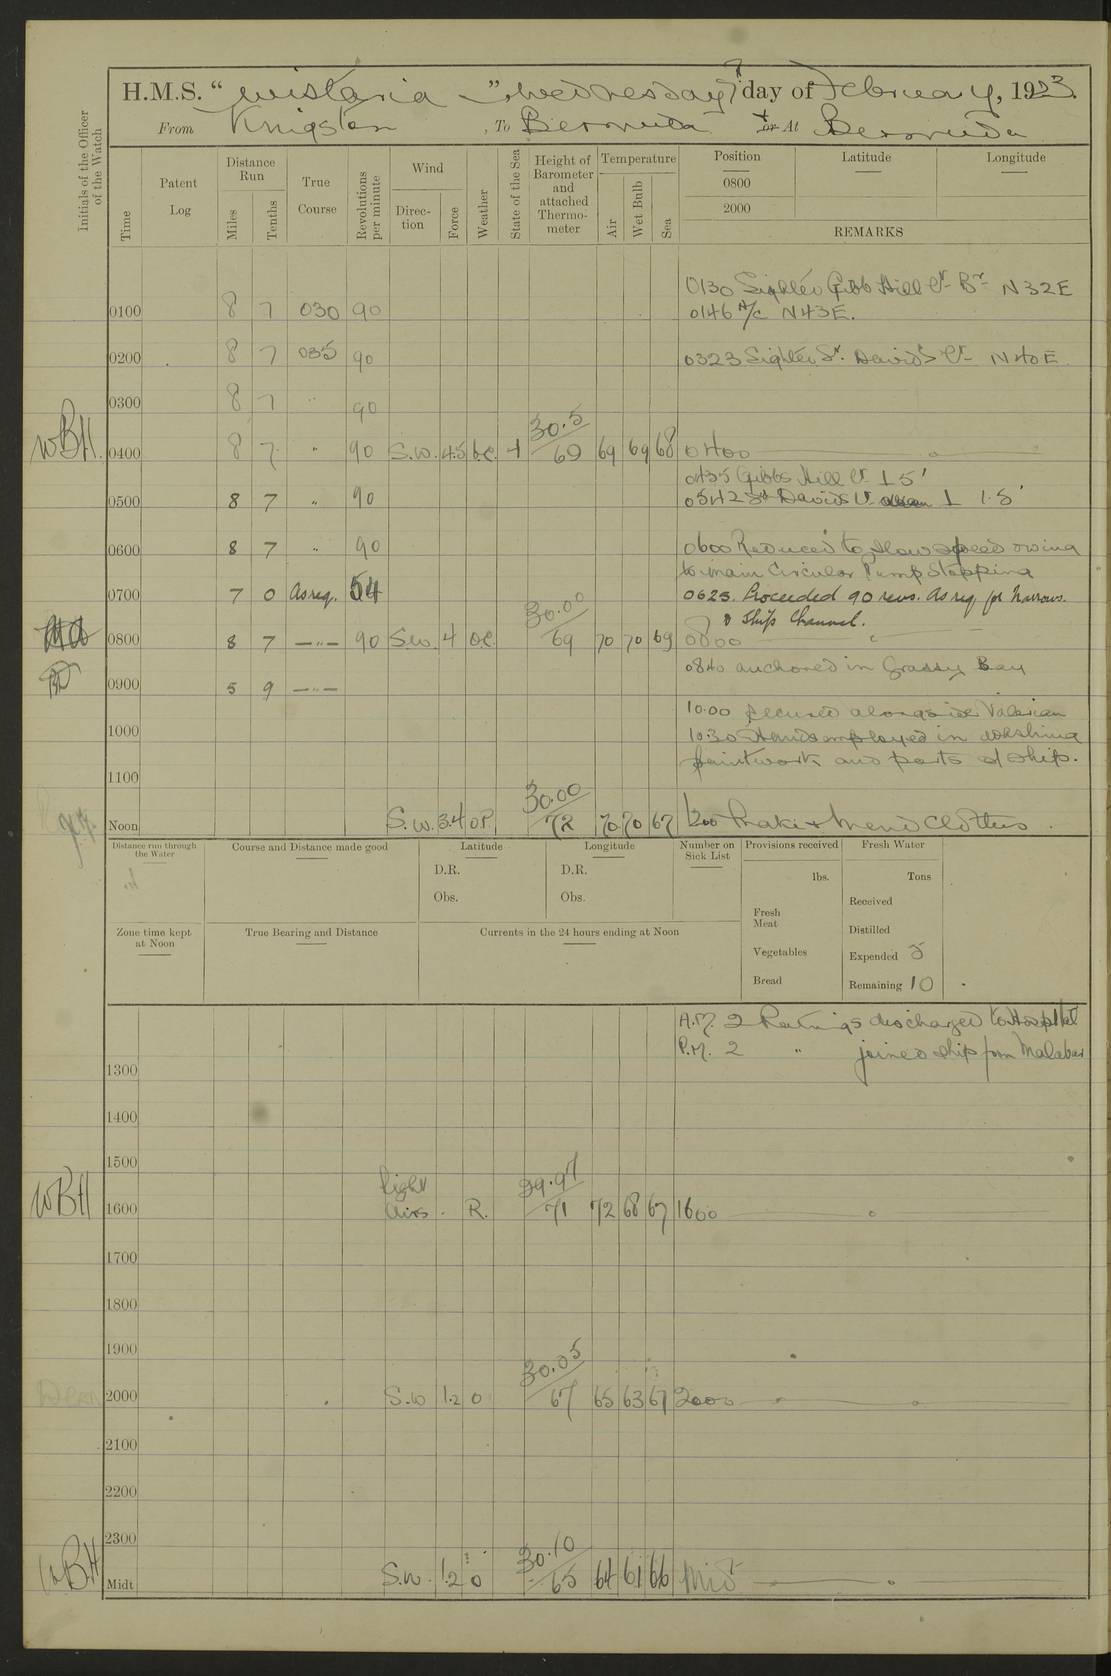 H.M.S. “Wistaria”, Wednesday 7 day of February, 1923.
From Kingston, To Bermuda or At Bermuda
Initials of the Officer of the Watch
Time
Patent Log
Distance Run
Miles
Tenths
True Course
Revolutions per minute
Wind
Direc- tion
Force
Weather
State of the Sea
Height of Barometer and attached Thermo- meter
Temperature
Air
Wet Bulb
Sea
Position
0800
2000
Latitude
Longitude
REMARKS
0130 Sighted Gibb Hill Lt Br N32E
0100 8 7 030 90 0146 A/c N43E.
0200 8 7 035 90 0323 Sighted St. David's Lt N40E
0300 8 7 " 90
WBH. 0400 8 7 " 90 S.W. 4.5 b.c. 30.5/69 69 69 68 0400
0435 Gibbs Hill Lt ⊥ 5'
0500 8 7 " 90 0542 St Davids Lt ⊥ 1.5'
0600 8 7 " 90 0600 Reduced to slow speed owing
to main Circular Pump Stopping
0700 7 0 As req. 54 0625. Proceeded 90 revs. As req for Narrows.
& Ship Channel.
0800 8 7 —"— 90 S.W. 4 o.c. 30.00/69 70 70 69 0800
0900 5 9 —"— 0840 anchored in Grassy Bay
10.00 secured alongside Valerian
1000 10.30 Hands employed in washing
paintwork and parts of ship.
1100
Noon S.W. 3.4 o.P. 30.00/72 70 70 67 1200 Make & Mend Clothes.
Distance run through the Water
Course and Distance made good
Latitude
D.R.
Obs.
Longitude
D.R.
Obs.
Number on Sick List
Provisions received
lbs.
Fresh Meat
Vegetables
Bread
Fresh Water
Tons
Received
Distilled
Expended 5
Remaining 10
Zone time kept at Noon
True Bearing and Distance
Currents in the 24 hours ending at Noon
A.M. 2 Ratings discharged to Hospital
P.M. 2 " joined ship from Malabar
1300
1400
1500
WBH 1600 light airs. R. 29.97/71 72 68 67 1600
1700
1800
1900
2000 S.W 1.2 0 30.05/67 65 63 67 2000
2100
2200
2300
WBH Midt S.W. 1.2 0 30.10/65 64 61 66 Midt